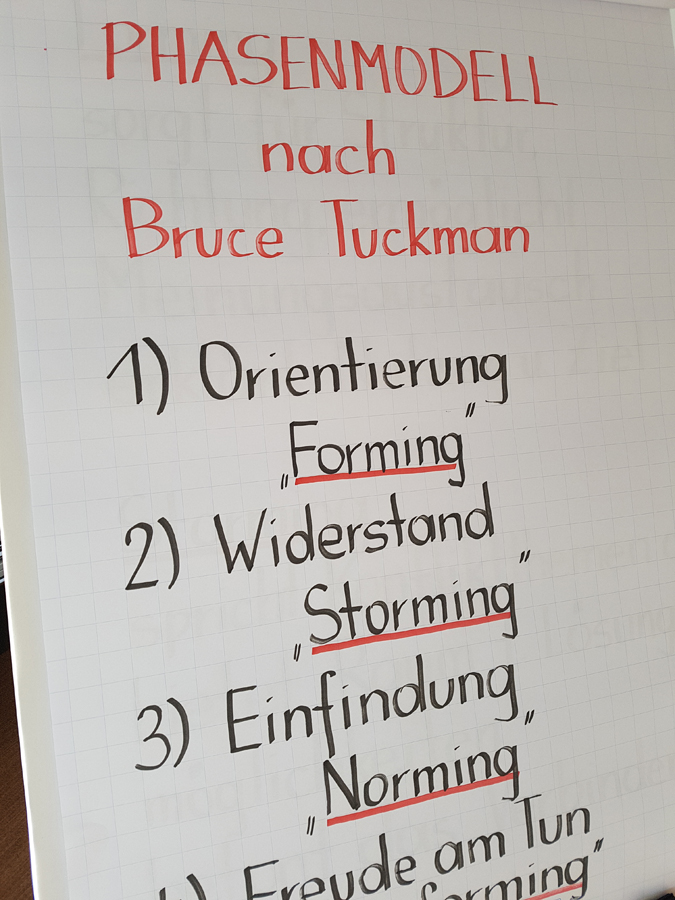 PHASENMODELL
nach
Bruce Tuckman
1) Orientierung
„Forming"
2) Widerstand
„Storming"
3) Einfindung
„Norming"
Freude am Tun